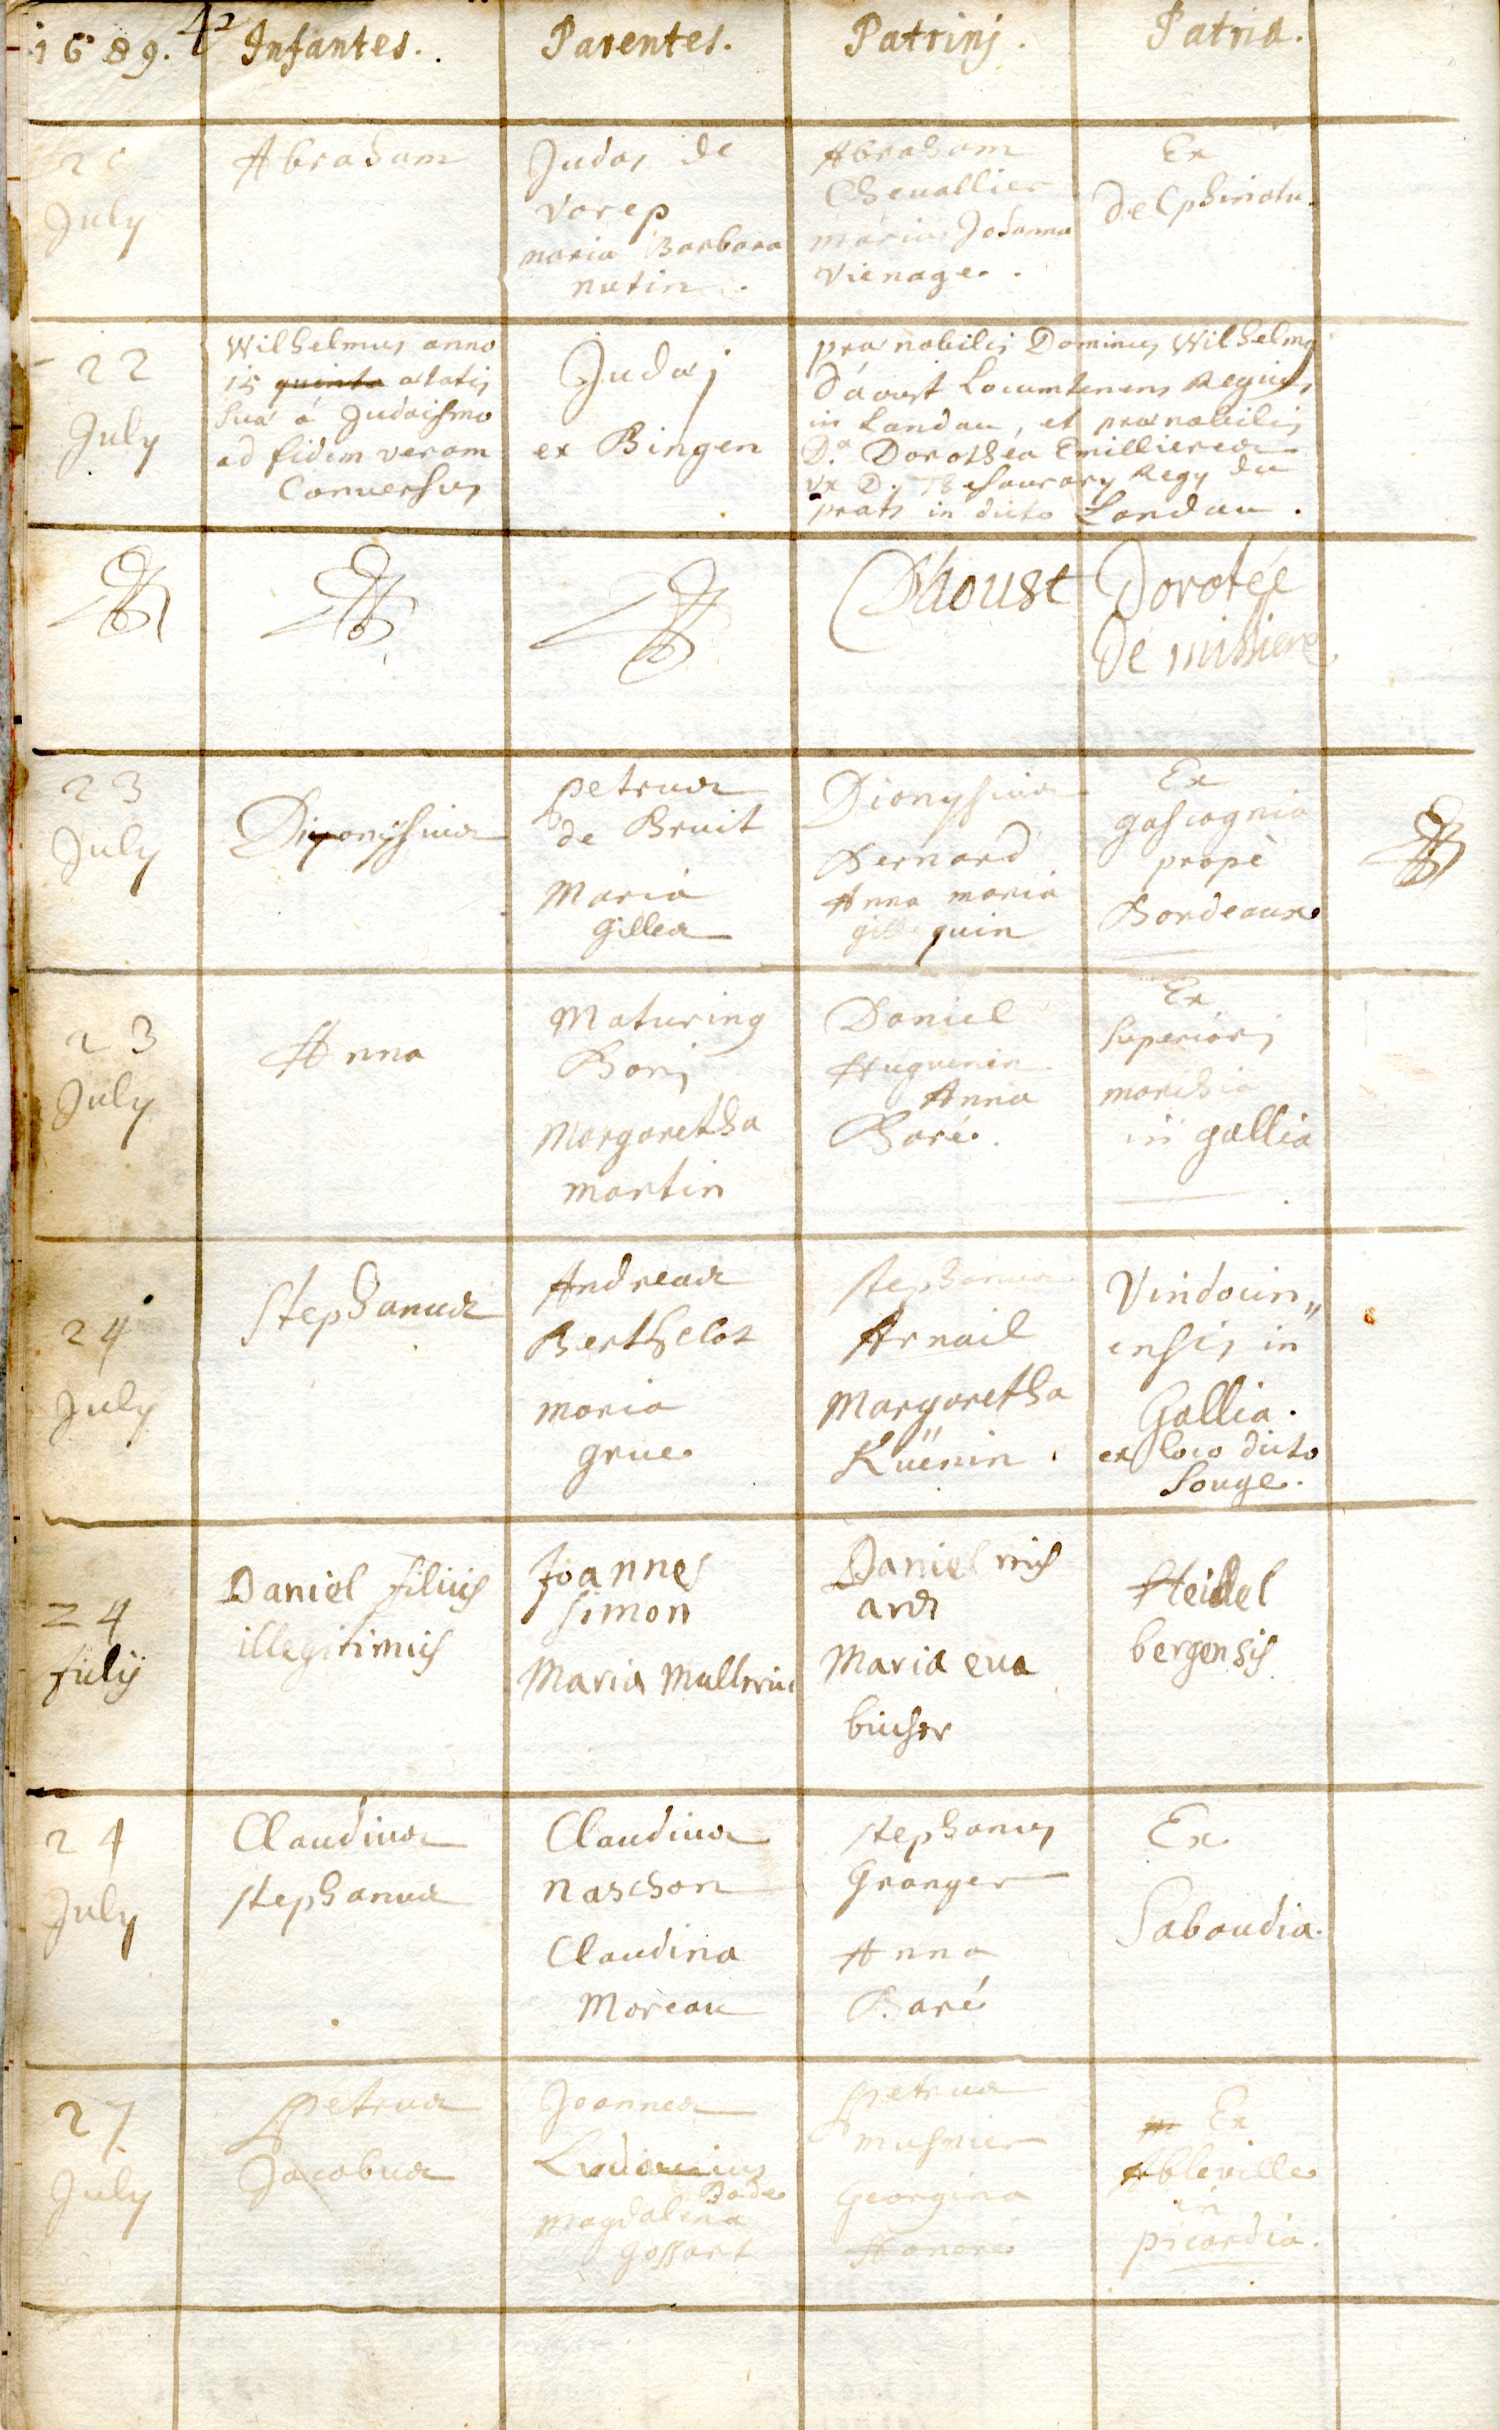 1689. 42 Infantes. Parentes. Patrinj. Patria.
July
Abraham
Judas de
vorep
maria Barbara
nutin.
Abraham
Chevallier
maria Johanna
vienage.
Ex
Delphinatu.
22
July
Wilhelmus anno
15 quinto ætatis
suæ á Judaismo
ad fidem veram
Conversus
Judæj
ex Bingen
prænobilis Dominus Wilhelmq
D'aoust Locumtenens Regius
in Landau, et prænobilis
D.a Dorothea Emillieres
ux D. Thesaurary Regy du
prats in dicto Landau.
Dhoust
Dorotée
De
23
July
Dionysius
petrus
de Bruit
Maria
Gilles
Dionysius
Bernard
Anna maria
gillequin
Ex
gascognia
propè
Bordeaux
23
July
Anna
Maturinq
Boni
Margaretha
martin
Daniel
Huguenin
Anna
Baré.
Ex
superiorj
marchia
in gallia
24
July
Stephanus
Andreas
Berthelot
maria
grue
stephanus
Arnail
Margaretha
Küenin.
Vindocin„
ensis in
Gallia.
ex loco dicto
Souge.
24
Julÿ
Daniel filius
illegitimus
Joannes
simon
Maria Mullerin
Daniel mis
ards
Maria eva
bucher
Heidel
bergensis
24
July
Claudius
stephanus
Claudius
naschon
Claudina
Moreau
stephanus
Granger
Anna
Baré
Ex
Sabaudia.
27
July
petrus
Jacobus
Joannes
Ludovicus
Bade
magdalena
gossart
petrus
musnier
Georgina
Honoré
Ex
Ableville
in
picardia.